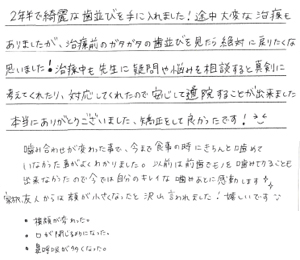 2年半で綺麗な歯並びを手に入れました！途中大変な治療も
ありましたが、治療前のガタガタの歯並びを見たら絶対に戻りたくな
思いました！治療中も先生に疑問や悩みを相談すると真剣に
考えてくれたり、対応してくれたので安心して通院することが出来ました
本当にありがとうございました、矯正をして良かったです！
噛み合わせが変わった事で、今まで食事の時にきちんと噛めて
いなかった事がよくわかりました。以前は前歯でモノを噛みきることも
出来なかったので今では自分のキレイな噛みあとに感動します
家族、友人からは顔が小さくなったと沢山言われました！嬉しいです
・横顔が変わった。
・口が閉じるようになった。
・鼻呼吸が多くなった。